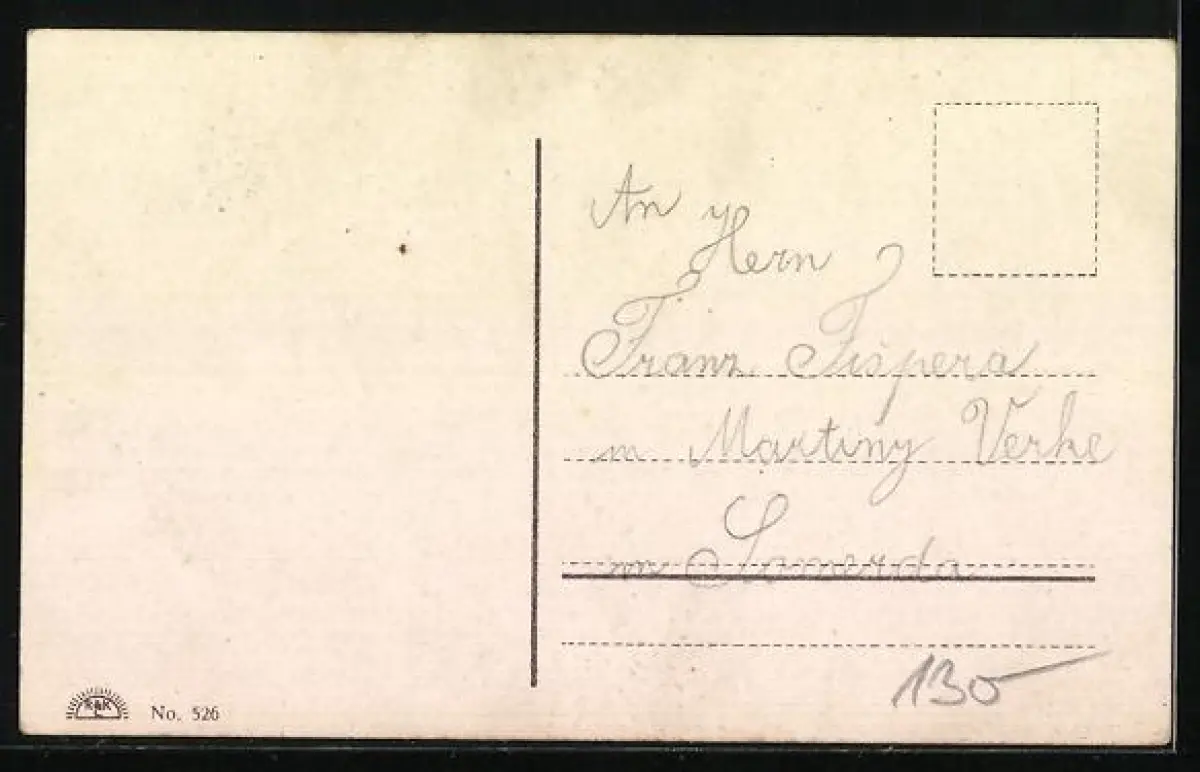 An
Hern
Franz Fispera
in Martiny Verke
in Somerda
130
R&K
L
No. 526